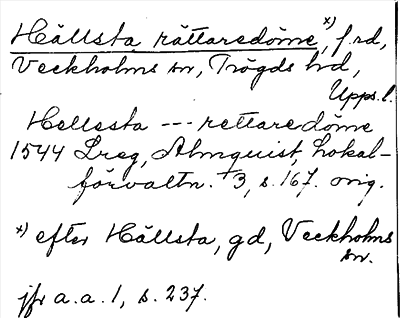 Hällsta rättaredöme,ˣ⁾ f.rd,
Veckholms sn, Trögds hd,
Upps.l.
Hellesta --- rettaredöme
1544 Lreg, Almquist, Lokal-
förvaltn. 3, s. 167. orig.
ˣ⁾ efter Hällsta, gd, Veckholms
sn.
jfr a.a. 1, s. 237.